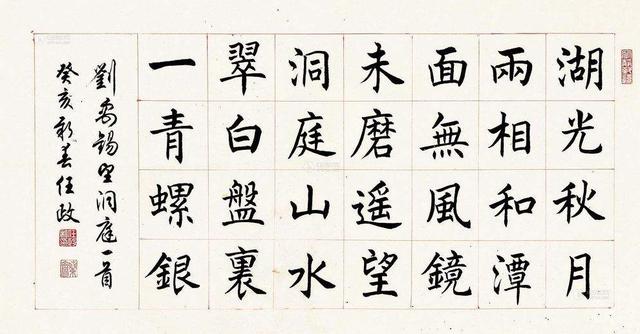 湖光秋月
兩相和潭
面無風鏡
未磨遥望
洞庭山水
翠白盤裏
一青螺銀
劉禹錫望洞庭一首
癸亥新春任政